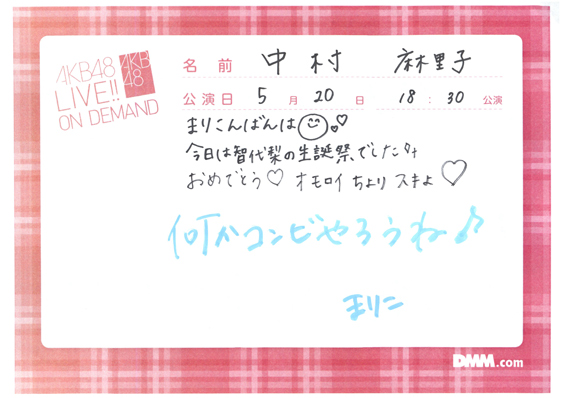 AKB48
LIVE!!
ON DEMAND
AKB
48
名前 中村 麻里子
公演日 5月20日 18:30公演
まりこんばんは
今日は智代梨の生誕祭でした
おめでとう♡ オモロイ ちょり スキよ♡
何かコンビやろうね♪
まりこ
DMM.com